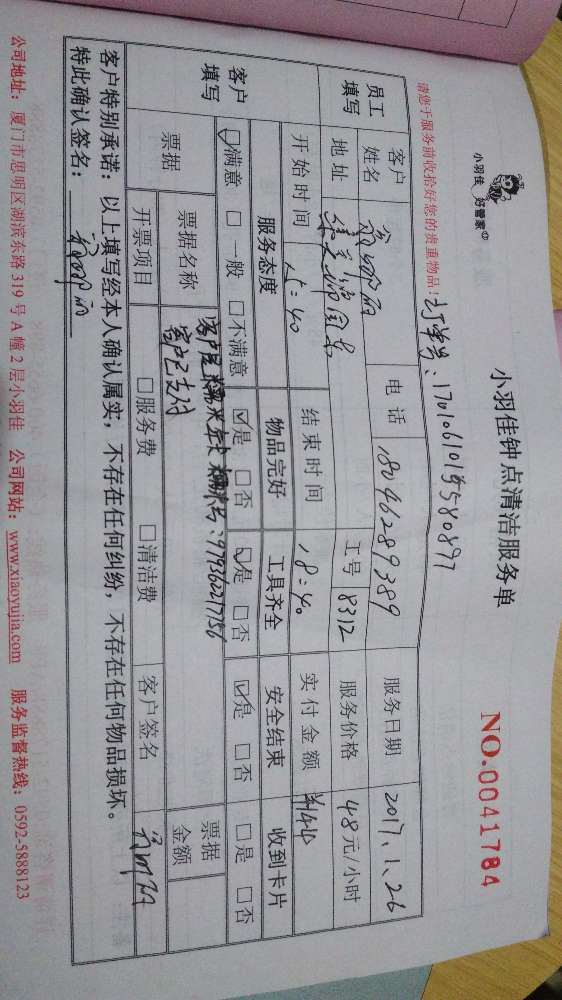 小羽佳 好管家
小羽佳钟点清洁服务单
NO.0041784
请您于服务前收拾好您的贵重物品!
订单号:
员工填写
客户姓名
电话 18046289389
服务日期 2017.1.26
地址
工号 8312
服务价格 48元/小时
开始时间
结束时间 18:40
实付金额
客户填写
服务态度 物品完好 工具齐全 安全结束 收到卡片
☑满意 □一般 □不满意 ☑是 □否 ☑是 □否 ☑是 □否 □是 □否
票据
票据名称 客户已支付
票据金额
开票项目 □服务费 □清洁费 客户签名
客户特别承诺:以上填写经本人确认属实,不存在任何纠纷,不存在任何物品损坏。
特此确认签名:
公司地址:厦门市思明区湖滨东路319号A幢2层小羽佳 公司网站:www.xiaoyujia.com 服务监督热线:0592-5888123